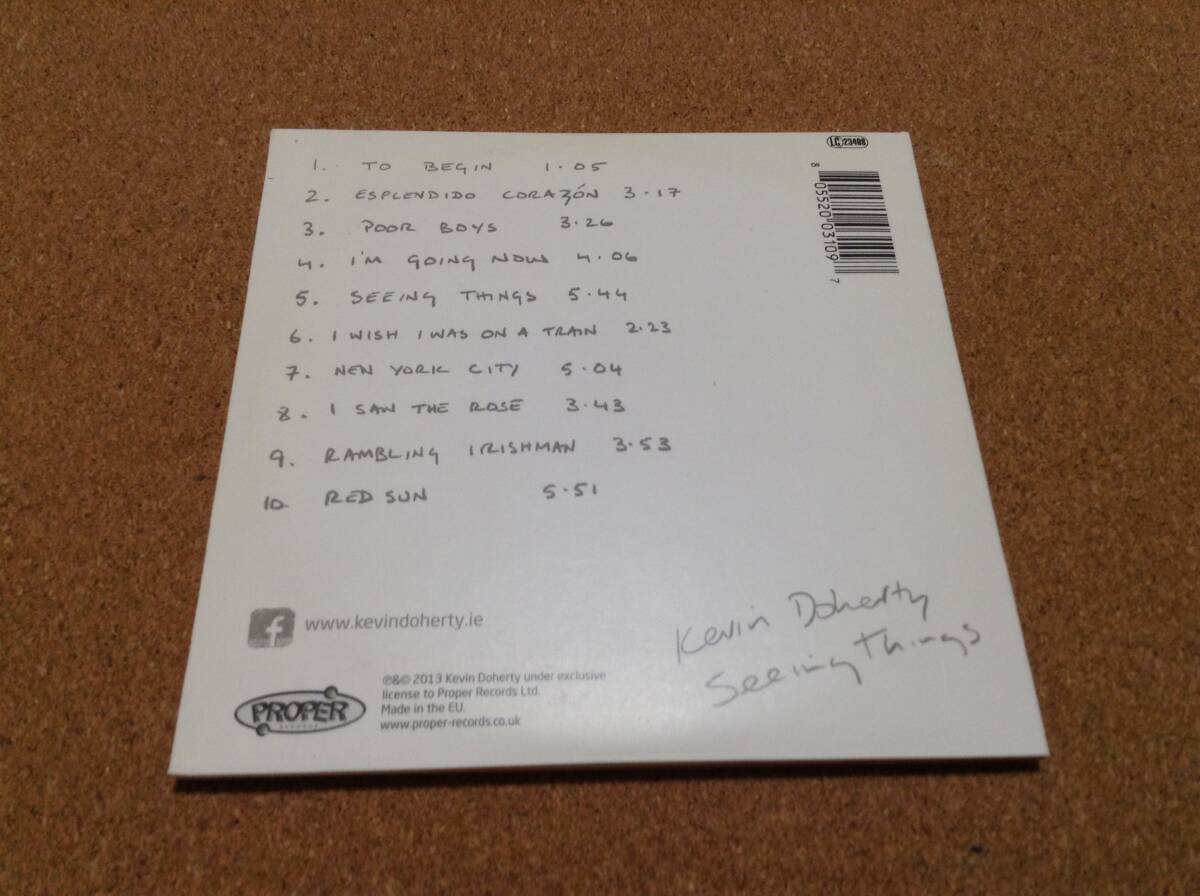 LC 23488
8 05520 03109 7
1. TO BEGIN 1.05
2. ESPLENDIDO CORAZÓN 3.17
3. POOR BOYS 3.26
4. I'M GOING NOW 4.06
5. SEEING THINGS 5.44
6. I WISH I WAS ON A TRAIN 2.23
7. NEW YORK CITY 5.04
8. I SAW THE ROSE 3.43
9. RAMBLING IRISHMAN 3.53
10. RED SUN 5.51
www.kevindoherty.ie
Kevin Doherty
Seeing Things
℗&© 2013 Kevin Doherty under exclusive
license to Proper Records Ltd.
Made in the EU.
www.proper-records.co.uk
PROPER
RECORDS